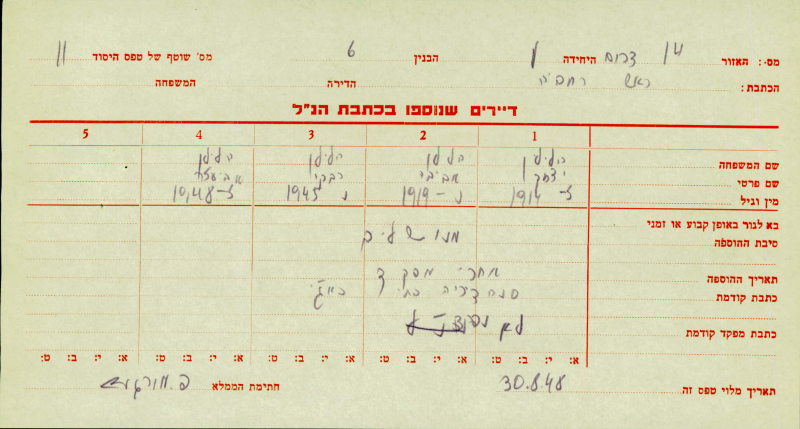 מס': האזור 14 דרום היחידה 1 הבנין 6 מס' שוטף של טפס היסוד 11
הכתבת: ראש רחביה הדירה המשפחה
דיירים שנוספו בכתבת הנ"ל
1 2 3 4 5
שם המשפחה הלילן הלילן הלילן הלילן
שם פרטי יצחק אביבי רבקי
מין וגיל ז- 1914 נ- 1919 נ 1945 ז- 10,48
בא לגור באופן קבוע או זמני
סיבת ההוספה
תאריך ההוספה אחרי מפקד
כתבת קודמת סנהדריה
כתבת מפקד קודמת לא נפקד
א: י: ב: ט: א: י: ב: ט: א: י: ב: ט: א: י: ב: ט: א: י: ב: ט:
תאריך מלוי טפס זה 30.8.48 חתימת הממלא